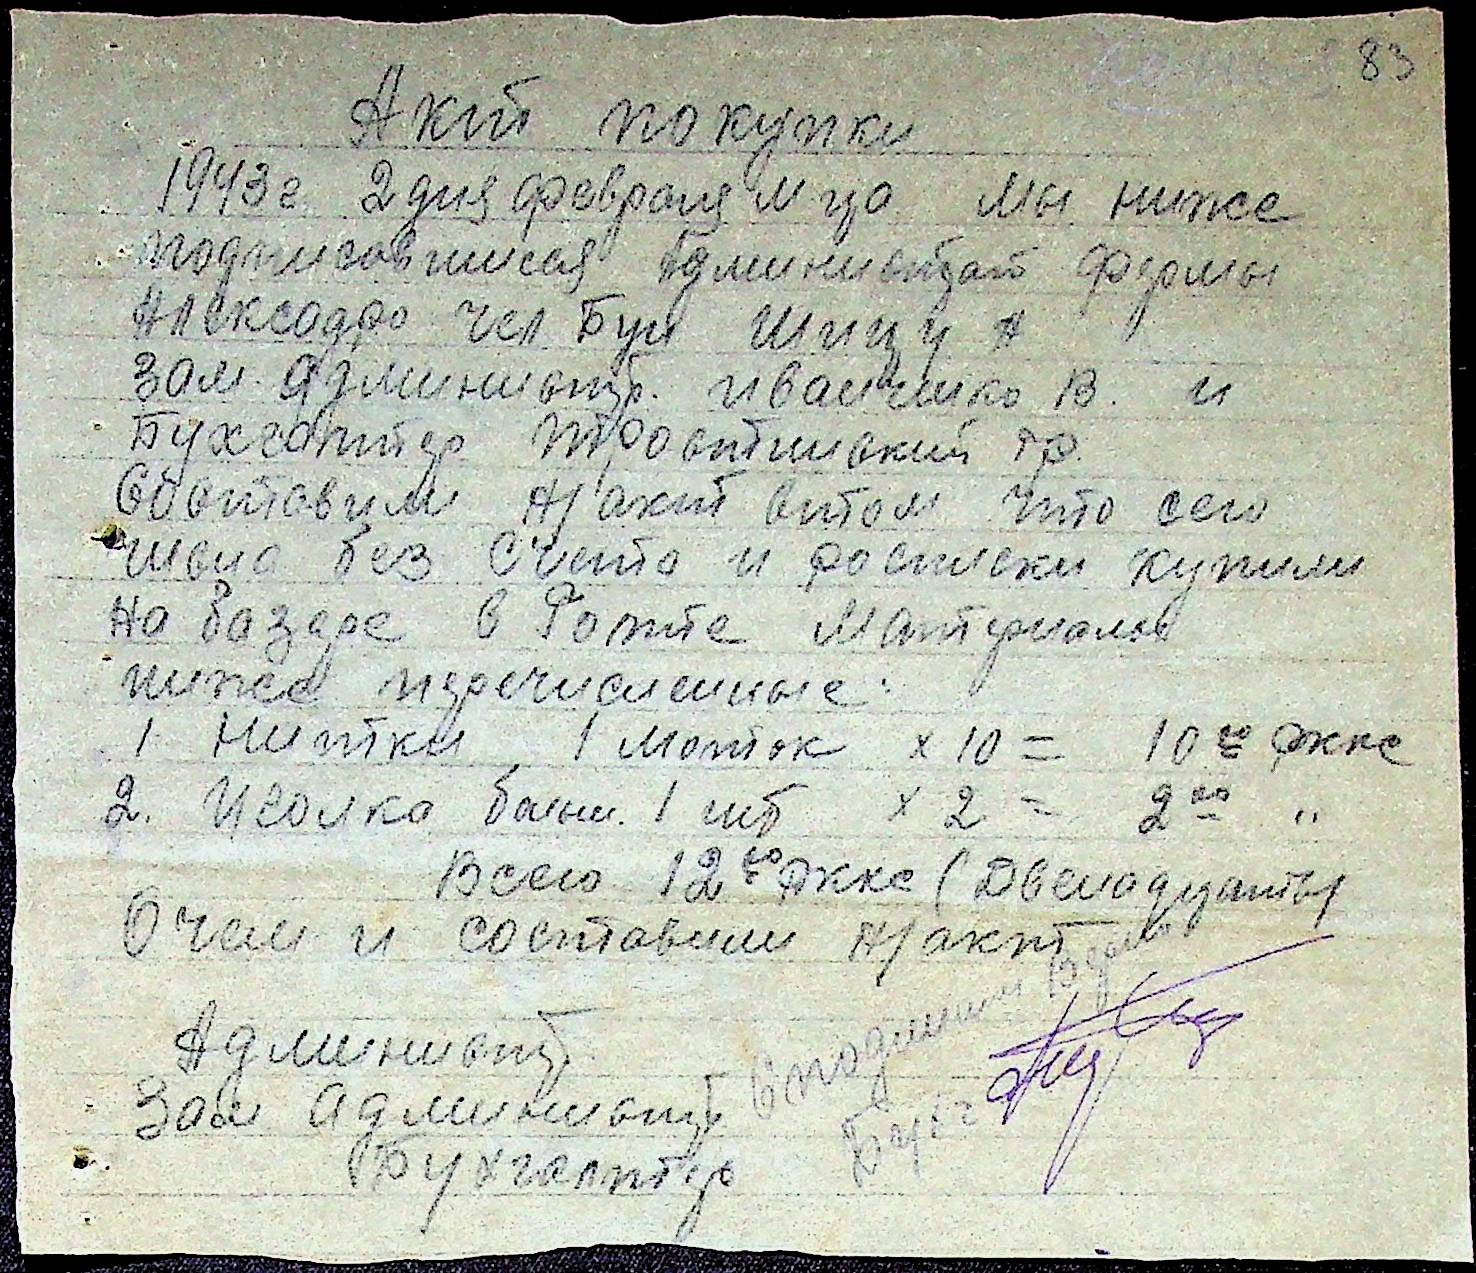 83
Акт покупки
1943 г. 2 дня февраля м-ца мы ниже
подписавшиеся Администрат фермы
Алексадро чел Бун Шицу А
Зам. Администр. Иванчико В. и
Бухгалтер Тростинский Гр.
Составили н/акт втом что сего
числа без счета и росписки купили
на базаре в Голте материалы
ниже перечисленные:
1 Нитки 1 моток х 10 = 10 00 РККС
2. Иголка больш. 1 шт х 2 = 2 00 "
Всего 12 00 РККС (Двенадцать)
О чем и составили н/акт
Администр
Зам Администр
Бухгалтер
С подлинным
Бухг